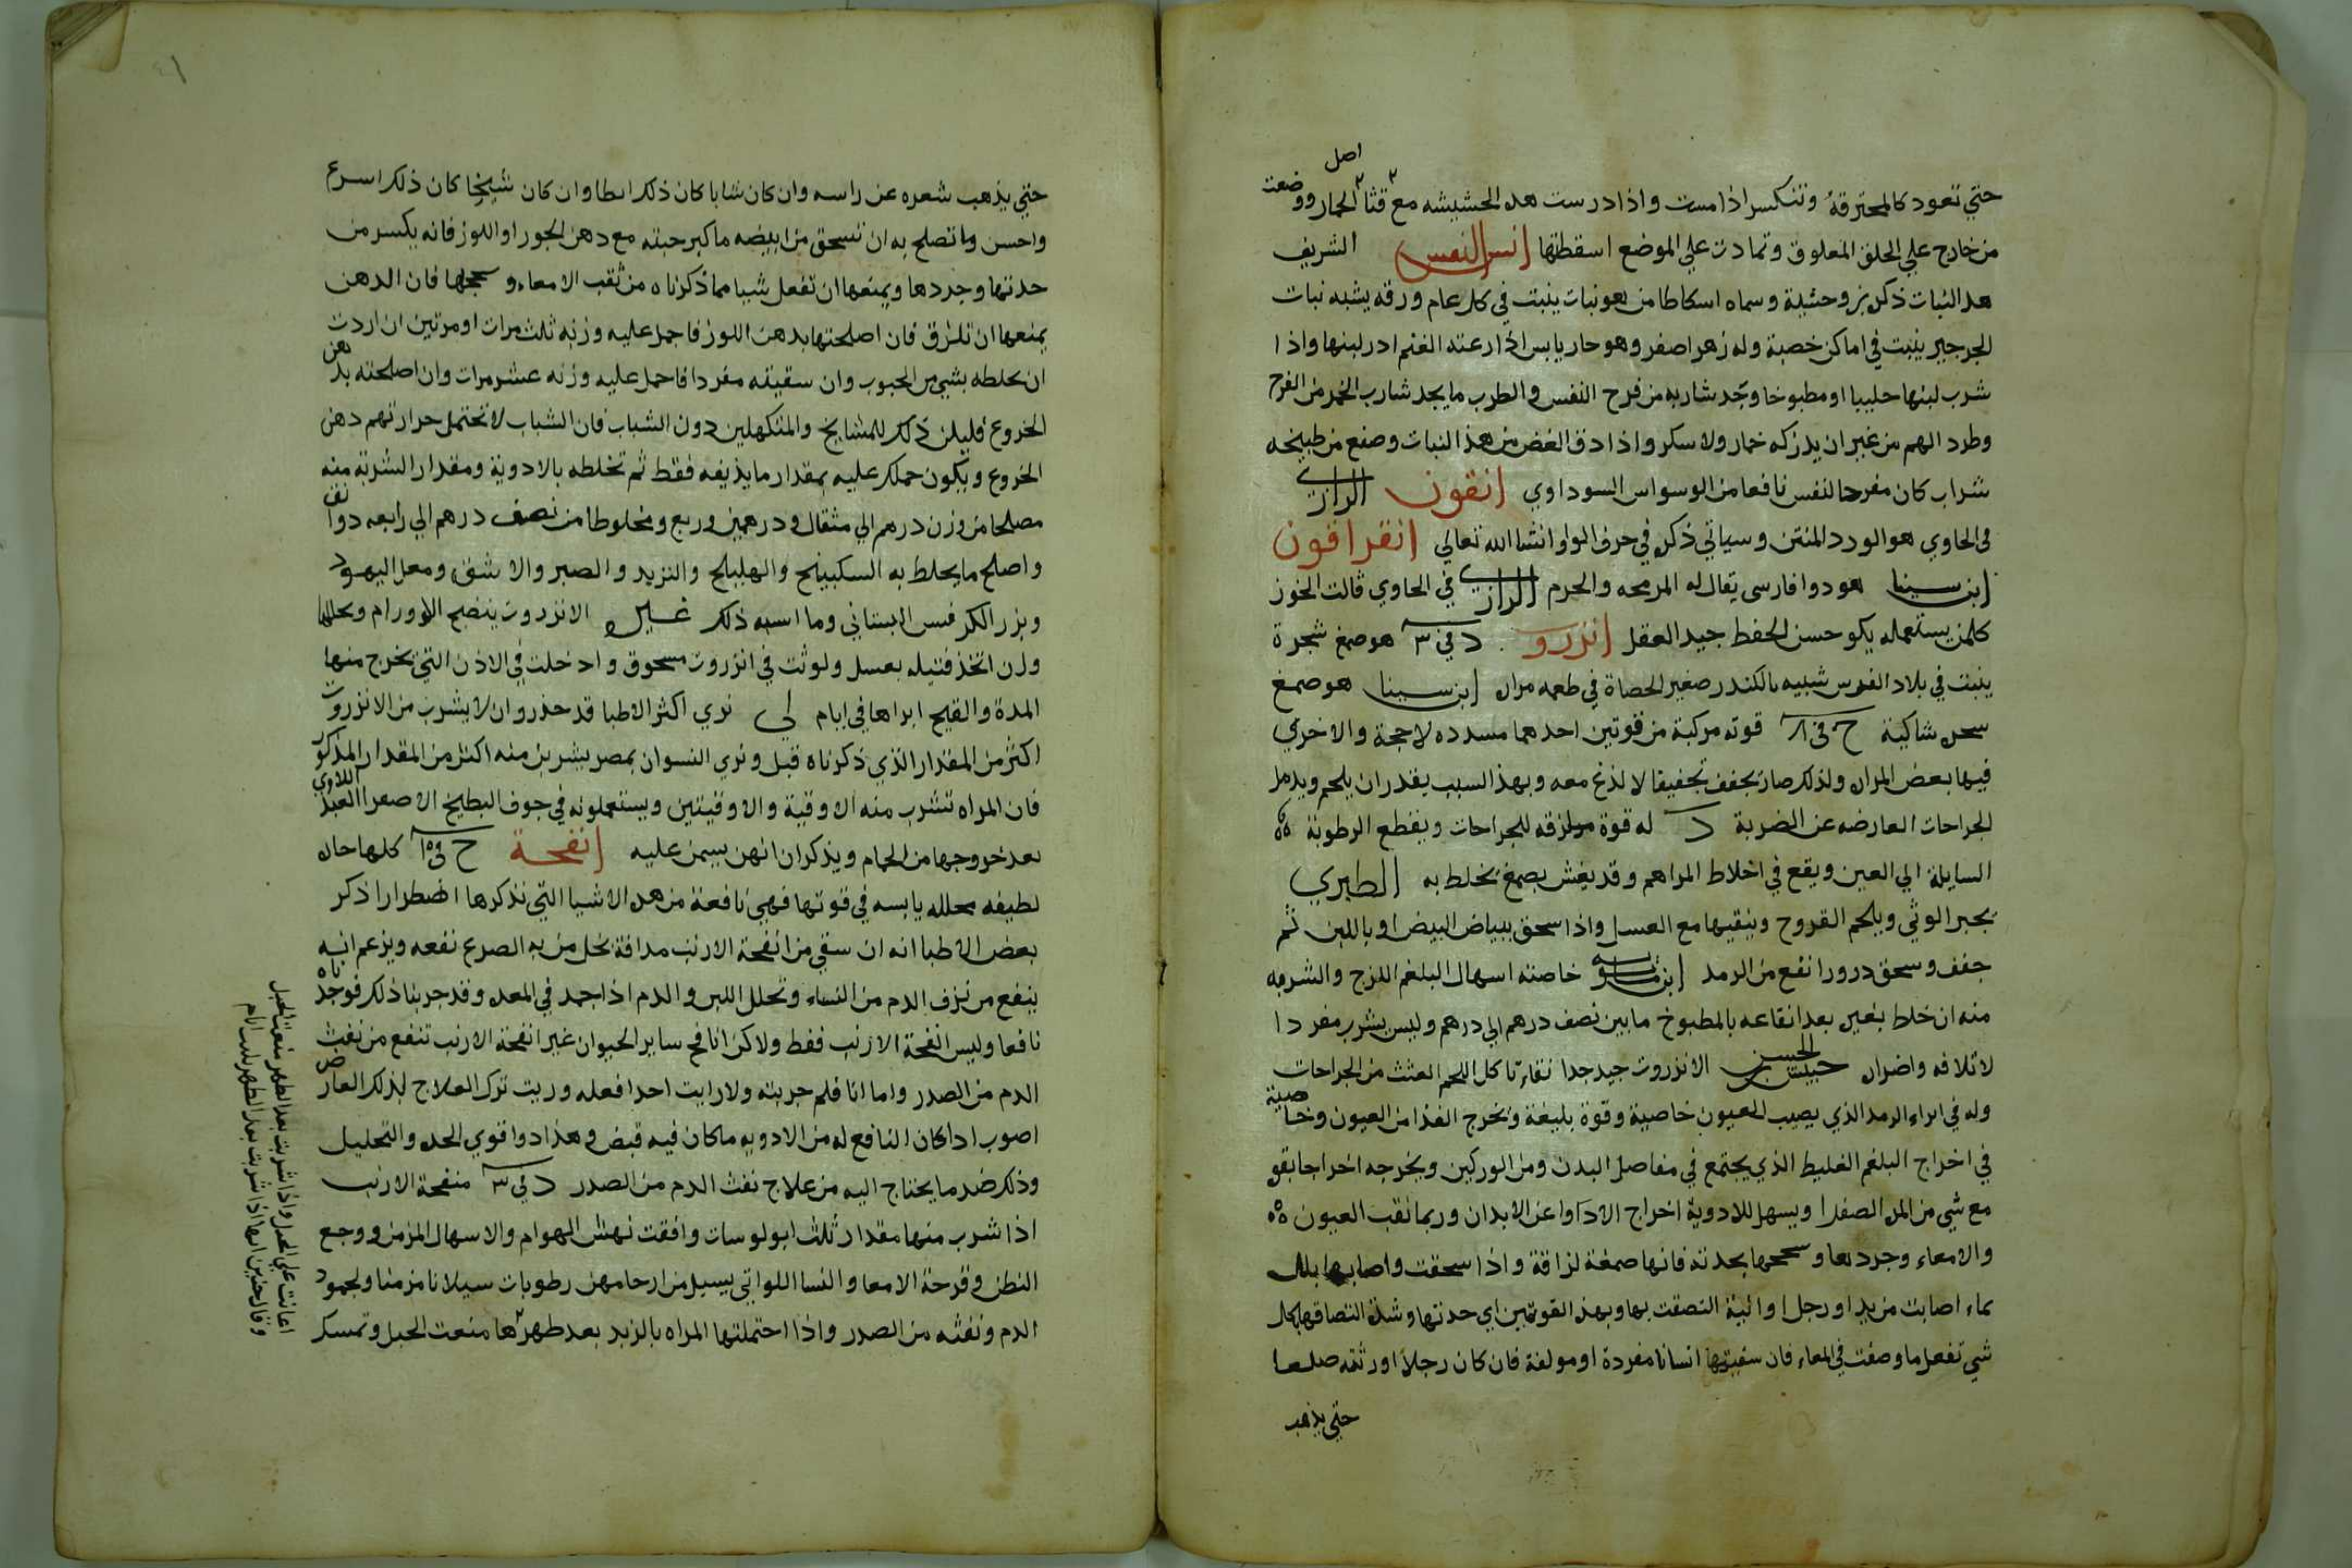 اصل
حتي تعود كالمحترقة وتنكسر اذا مست واذا درست هده الحشيشه مع قثا الحمار ووضعت
من خارج علي الحلق المعلوق وتمادت علي الموضع اسقطتها انس النفس الشريف
هدا النبات ذكره بن وحشية وسماه اسكاطامن هو نبات ينبت في كل عام ورقه يشبه نبات
الجرجير ينبت في اماكن خصبة وله زهر اصفر وهو حار يابس اذا رعته الغنم ادر لبنها واذا
شرب لبنها حليبا او مطبوخا وجد شاربه من فرح النفس والطرب ما يجد شارب الخمر من الفرح
وطرد الهم من غير ان يدركه خمار ولا سكر واذا دق الغض من هذا النبات وصنع من طبيخه
شراب كان مفرحا للنفس نافعا من الوسواس السوداوي انقون الرازي
في الحاوي هو الورد المنتن وسياتي ذكره في حرف الواو انشا الله تعالي انقرافون
ابن سينا هو دوا فارسي يقال له المرمحه والحرم الرازي في الحاوي قالت الخوز
كلمن يستعمله يكو حسن الحفظ جيد العقل انزرو د في ٣ هو صمغ شجرة
ينبت في بلاد الفرس شبيه بالكندر صغير الحصاة في طعمه مرار ابن سينا هو صمغ
شاكية ج في ٨ قوته مركبة من قوتين احدهما مسدده لاحجة والاخري
فيها بعض المرار ولذلك صار يجفف تجفيفا لا لذع معه وبهذا السبب يقدر ان يلحم ويدمل
الجراحات العارضه عن الضربة د له قوة ملزقه للجراحات ويقطع الرطوبة
السايلة الي العين ويقع في اخلاط المراهم وقد يغش بصمغ يخلط به الطبري
يجبر الوثي ويلحم القروح وينقيها مع العسل واذا سحق ببياض البيض او باللبن ثم
جفف وسحق درورا نفع من الرمد ابن ماسويه خاصته اسهال البلغم اللزج والشربه
منه ان خلط بغيره بعد انقاعه بالمطبوخ ما بين نصف درهم الي درهم وليس يشرب مفردا
لاتلافه واضراره حبيش بن الحسن الانزروت جيد جدا نقاء تاكل اللحم العثث من الجراحات
وله في ابراء الرمد الذي يصيب العيون خاصية وقوة بليغة وتخرج القذا من العيون وخاصية
في اخراج البلغم الغليط الذي يجتمع في مفاصل البدن ومن الوركين ويخرجه اخراجا بقوه
مع شي من المره الصفرا ويسهل للادوية اخراج الادآوا عن الابدان وربما نقب العيون
والامعاء وجردها وسحجها بحدته فانها صمغة لزاقة واذا سحقت واصابها بلل
بماء اصابت من يد او رجل او انية التصقت بها وبهذه القوتين اي حدتها وشدة التصاقها بكل
شي تفعل ما وصفت في المعاء فان سقيتها انسانا مفردة او مولفة فان كان رجلا اورثته صلعا
حتي يذهب
حتي يذهب شعره عن راسه وان كان شابا كان ذلك ابطا وان كان شيخا كان ذلك اسرع
واحسن وما تصلح به ان تسحق من ابيضه ما كبر حبته مع دهن الجوز او اللوز فانه يكسر من
حدتها وجردها ويمنعها ان تفعل شيا مما ذكرناه من ثقب الامعاء وسحجها فان الدهن
يمنعها ان تلزق فان اصلحتها بدهن اللوز فاحمل عليه وزنه ثلث مرات او مرتين ان اردت
ان تخلطه بشي من الحبوب وان سقيته مفردا فاحمل عليه وزنه عشر مرات وان اصلحته بدهن
الخروع فليكن ذلك للمشايخ والمتكهلين دون الشباب فان الشباب لا تحتمل حرارتهم دهن
الخروع ويكون حملك عليه بمقدار ما يذيفه فقط ثم تخلطه بالادوية ومقدار الشربة منه
مصلحا من وزن درهم الي مثقال ودرهمين وربع ومخلوطا من نصف درهم الي رابعه دوانق
واصلح ما يخلط به السكبينج والهليلج والتربد والصبر والاشق ومعل اليهود
وبزر الكرفس البستاني وما اسبه ذلك غيره الانزروت ينضج الاورام ويحللها
ولن اتخذ فتيله بعسل ولوثت في انزروت مسحوق وادخلت في الاذن التي يخرج منها
المدة والقيح ابراها في ايام لي نري اكثر الاطبا قد حذروا ان لا يشرب من الانزروت
اكثر من المقدار الذي ذكرناه قبل ونري النسوان بمصر يشربن منه اكثر من المقدار المذكور
فان المراه تشرب منه الاوقية والاوقيتين ويستعملونه في جوف البطيخ الاصفر العبدلاوي
بعد خروجها من الحمام ويذكران انهن يسمن عليه انفحة ج في ١٥ كلها حاره
لطيفه محلله يابسه في قوتها فهي نافعة من هده الاشيا التي نذكرها اضطرارا ذكر
بعض الاطبا انه ان سقي من انفحة الارنب مدافة بخل من به الصرع نفعه ويزعم انه
ينفع من نزف الدم من النساء وتحلل اللبن والدم اذا جمد في المعده وقد جربنا ذلك فوجدناه
نافعا وليس انفحة الارنب فقط ولاكن انافح ساير الحيوان غير انفحة الارنب تنفع من نفث
الدم من الصدر واما انا فلم جربته ولا رايت احدا فعله وريت ترك العلاج لذلك العارض
اصوب اذا كان النافع له من الادويه ما كان فيه قبض وهذا دوا قوي الحده والتحليل
وذلك ضد ما يحتاج اليه من علاج نفث الدم من الصدر د في ٣ منفحة الارنب
اذا شرب منها مقدار ثلث ابولوسات وافقت نهش الهوام والاسهال المزمن ووجع
البطن وقرحة الامعا والنسا اللواتي يسيل من ارحامهن رطوبات سيلانا مزمنا ولجمود
الدم ونفثه من الصدر واذا احتملتها المراه بالزبد بعد طهرها منعت الحبل وتمسك
اعانت علي الحبل واذا شربت بعد الطهر منعت الحبل